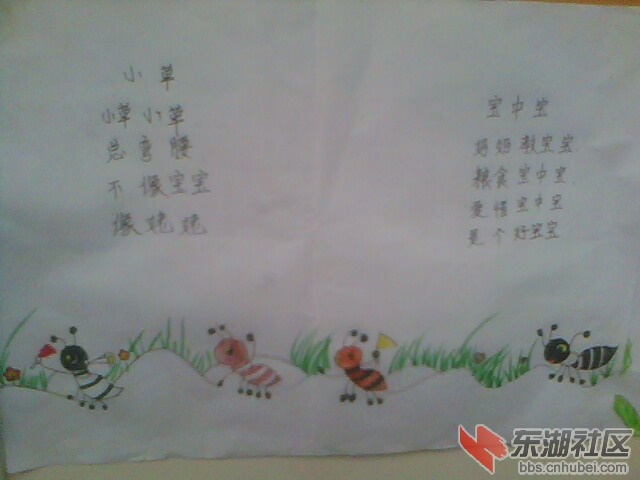 小草
小草小草
总弯腰
不像宝宝
像姥姥
宝中宝
妈妈教宝宝
粮食宝中宝
爱惜宝中宝
是个好宝宝
东湖社区
bbs.cnhubei.com